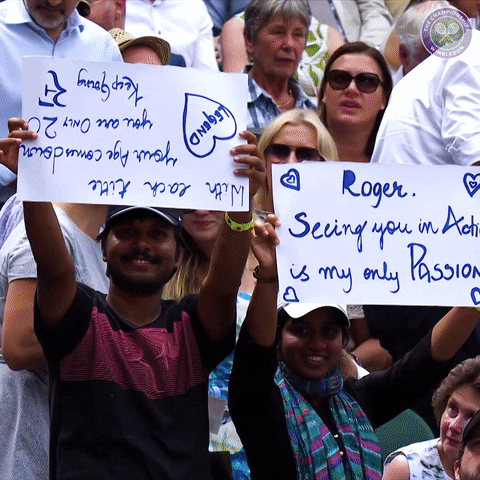 THE CHAMPIONSHIPS
WIMBLEDON
With each tittle
your Age comesdown
you are Only
Keep Going
LEGEND
Roger.
Seeing you in Acti
is my only PASSION